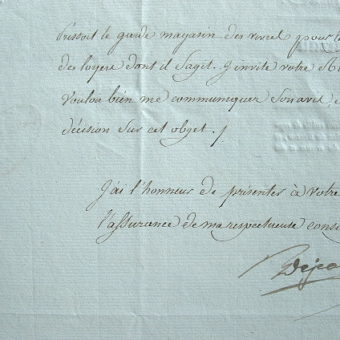 Pressoit le garde magasin des vivres pour l
des loyers dont il s'agit. J'invite votre
Vouloir bien me communiquer Son avis
décision Sur cet objet. /
J'ai l'honneur de présenter à Votre
l'assurance de ma respectueuse cons